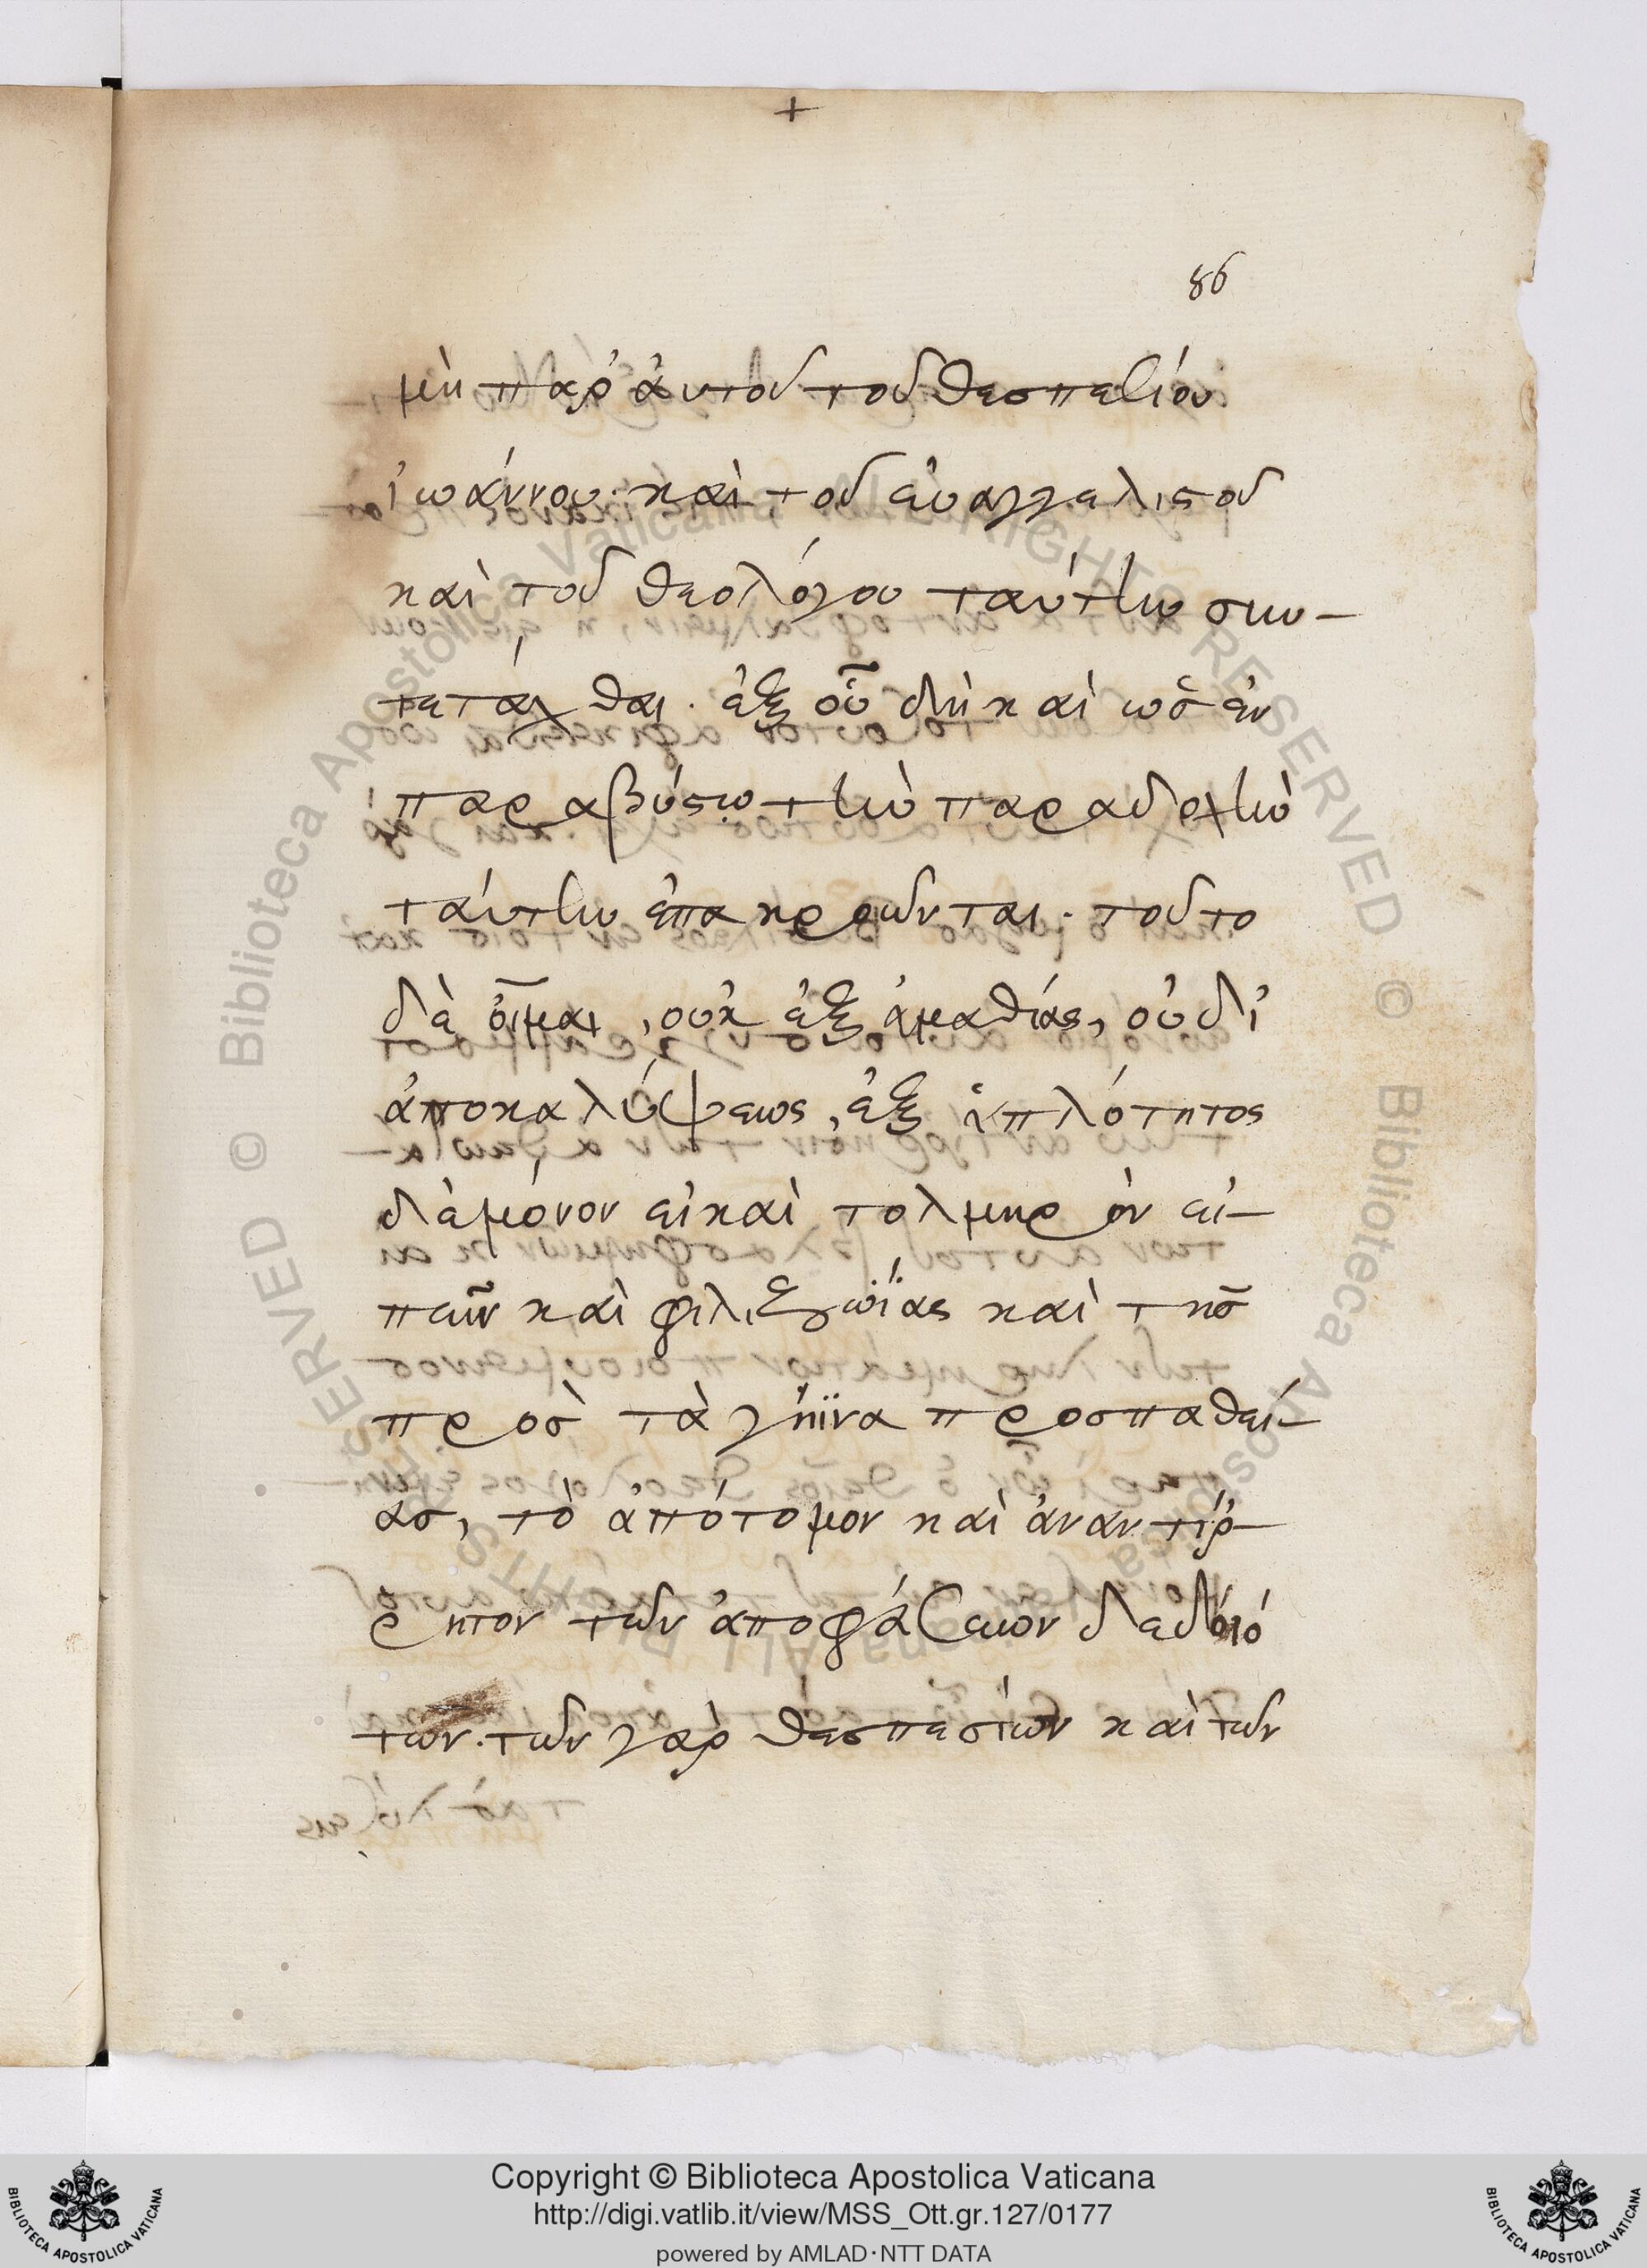 +
86
μὴ παρ' ἀυτοῦ τοῦ θεσπεσίου
ἰωάννου· καὶ τοῦ εὐαγγελιστοῦ
καὶ τοῦ θεολόγου ταύτην συν-
τετάχθαι· ἐξ οὗ δὴ καὶ ὡς ἐν
παραβύστω τὴν παραδοχὴν
ταύτην ἐπακροῶνται· τοῦτο
δὲ οἶμαι, οὐκ ἐξ ἀμαθίας, οὐδ'
ἀποκαλύψεως, ἐξ ἁπλότητος
δὲ μόνον εἰ καὶ τολμηρὸν εἰ-
πεῖν καὶ φιλοζωΐας καὶ τῆς
πρὸς τὰ γήϊνα προσπαθεί-
ας, τὸ ἀπότομον καὶ ἀναντίρ-
ρητον τῶν ἀποφάσεων δεδιό
των· τῶν γὰρ θεσπεσίων καὶ τῶν
© Biblioteca Apostolica Vaticana ALL RIGHTS RESERVED © Biblioteca Apostolica Vaticana ALL RIGHTS RESERVED
Copyright © Biblioteca Apostolica Vaticana
http://digi.vatlib.it/view/MSS_Ott.gr.127/0177
powered by AMLAD·NTT DATA
BIBLIOTECA APOSTOLICA VATICANA
BIBLIOTECA APOSTOLICA VATICANA